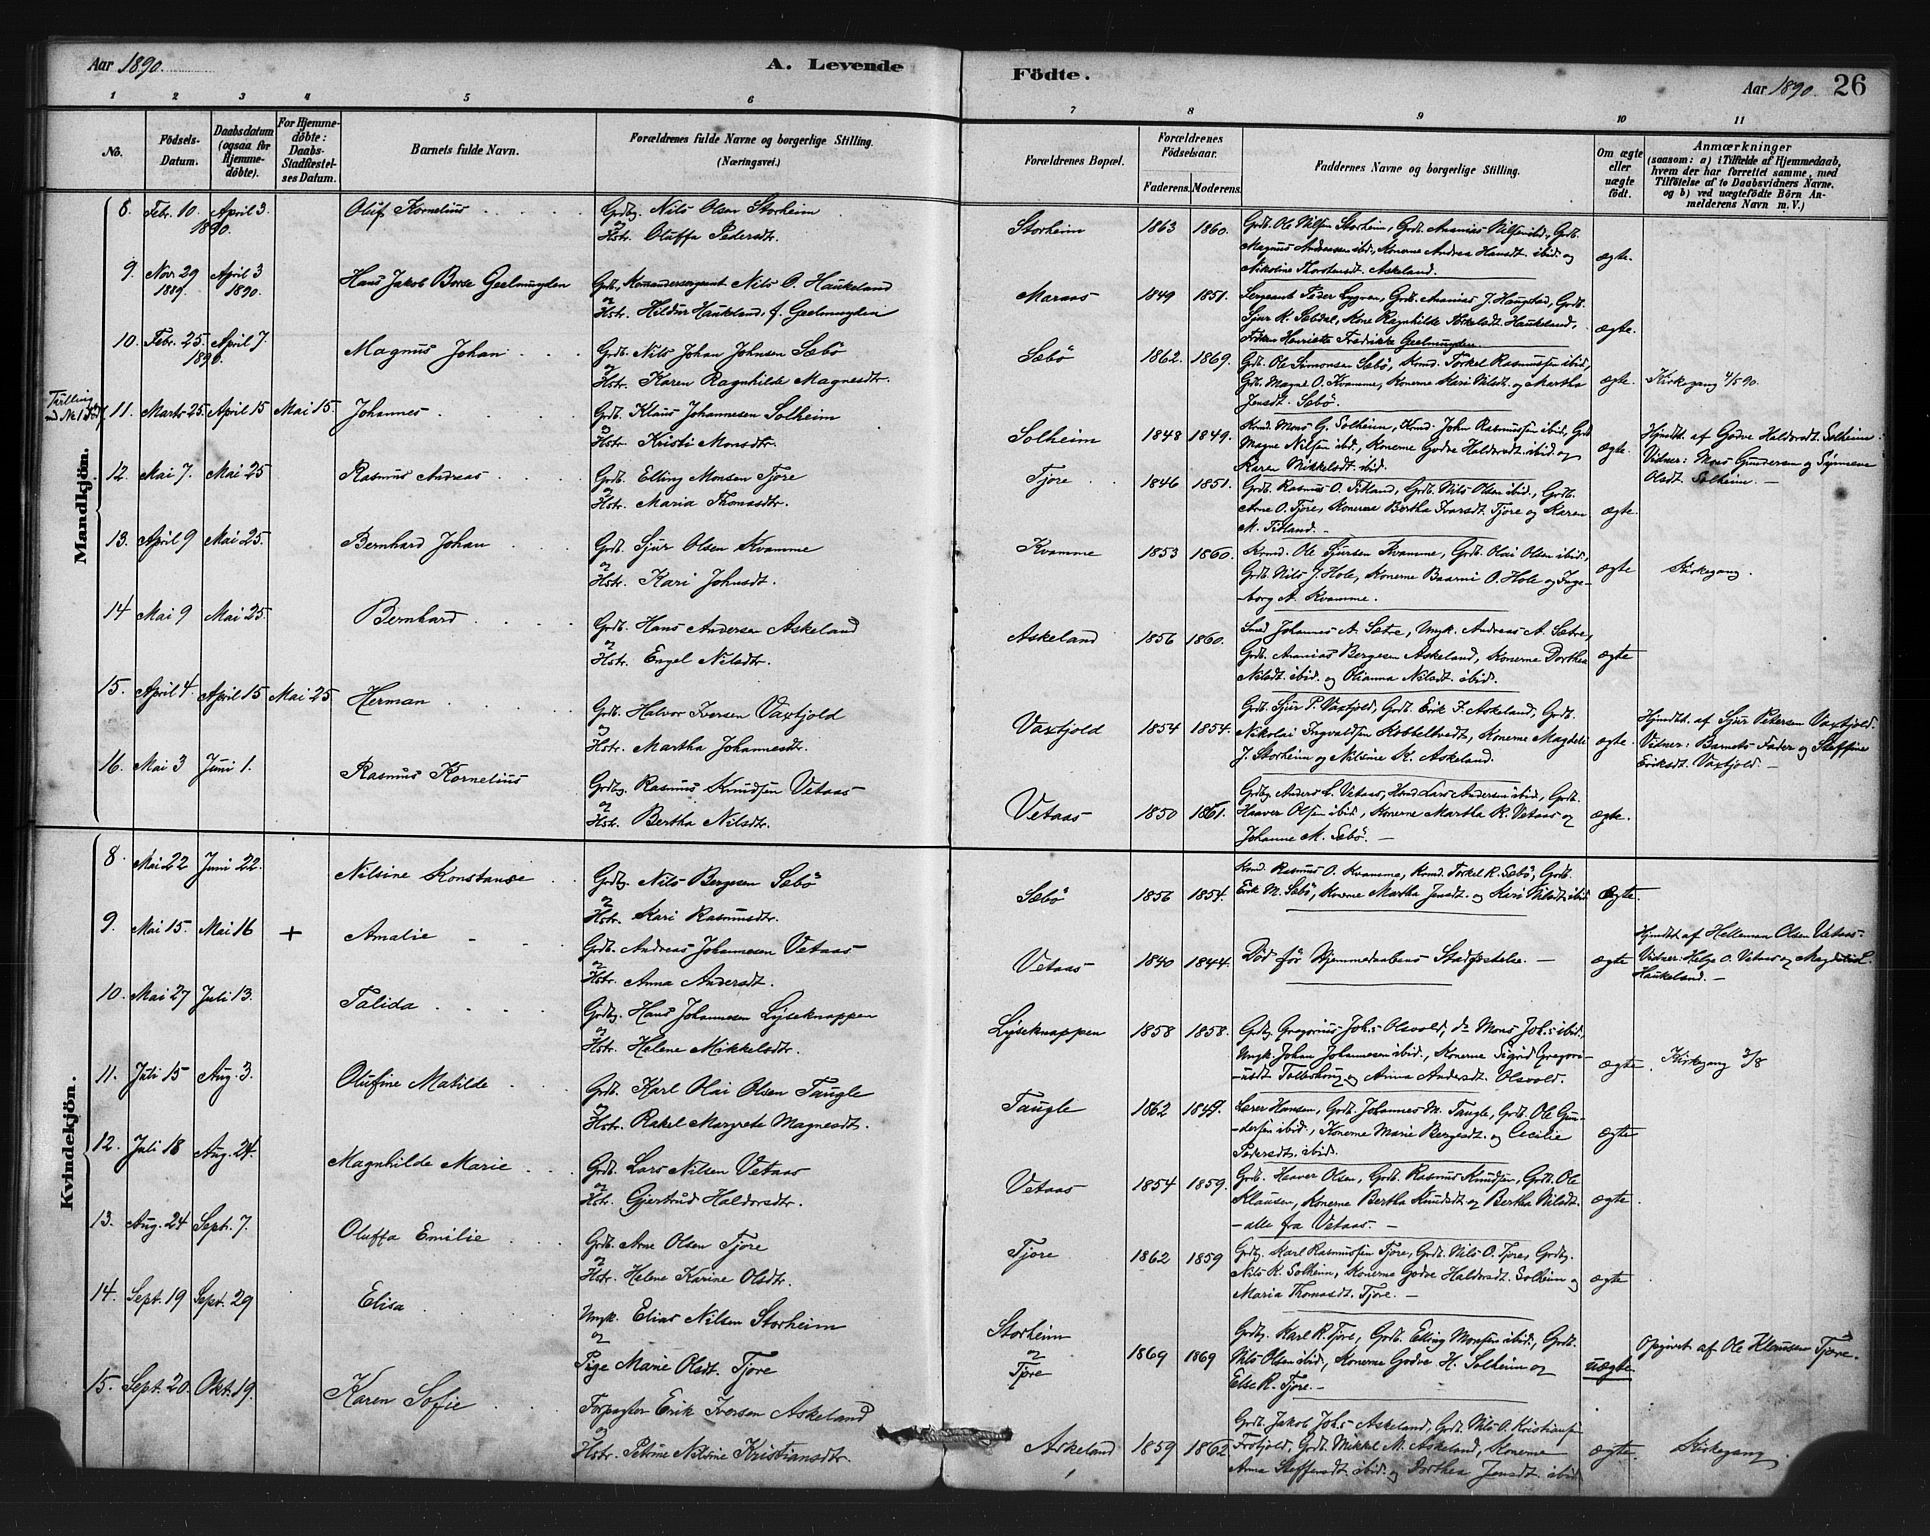 Aar 1890. A. Levende Födte. Aar 1890. 26
1 2 3 4 5 6 7 8 9 10 11
No. Födsels-Datum. Daabsdatum (ogsaa for Hjemme-döbte). For Hjemme-döbte: Daabs-Stadfæstel-ses Datum. Barnets fulde Navn. Forældrenes fulde Navne og borgerlige Stilling. (Næringsvei.) Forældrenes Bopæl. Forældrenes Födselsaar. Faderens. Moderens. Faddernes Navne og borgerlige Stilling. Om ægte eller uægte födt. Anmærkninger (saasom: a) i Tilfælde af Hjemmedaab, hvem der har forrettet samme, med Tilföielse af to Daabsvidners Navne. og b) ved uægtefödte Börn An-melderens Navn m. V.)
Mandkjön.
8. Febr. 10. 1890. April 3. Oluf Kornelius
Grdbg. Nils Olsen Storheim
og
Hstr. Oluffa Pedersdtr.
Storheim 1863 1860.
Grdb. Ole Nilsen Storheim, Grdb. Ananias Nilsen ibid., Grdb.
Magnus Andreassen ibid., Konerne Andrea Hansdt. ibid. og
Nikoline Thorstensdt. Askeland.
ægte.
9. Nov. 29 1889. April 3 1890. Hans Jakob Borse Geelmuyden
Grdb., Komandersergeant Nils O. Haukeland
og
Hstr. Hildur Haukeland, f. Geelmuyden
Maraas 1849 1851.
Sergeant Peder Lygren, Grdb. Ananias J. Haugstad, Grdb.
Sjur K. Sæbdal, Kone Ragnhilde Haukeland,
Frøken Henriette Fredrikke Geelmuyden.
ægte.
10. Febr. 25. 1890. April 7. Magnus Johan
Grdb. Nils Johan Johnsen Sæbö
og
Hstr. Karen Ragnhilde Magnesdtr.
Sæbö 1862. 1869.
Grdb. Ole Simonsen Sæbö, Kmd. Torkel Rasmussen ibid,
Grdb. Magne O. Kvamme, Konerne Kari Nilsdt. og Martha
Jensdt. Sæbö.
ægte. Kirkegang 4/5 90.
Tvilling
11. Marts 25. April 15 Mai 15. Johannes
Grdb. Klaus Johannesen Solheim
og
Hstr. Kristi Monsdtr.
Solheim 1848 1849.
Kmd. Mons G. Solheim, Kmd. John Rasmussen ibid, Grdb.
Magne Nilsen ibid., Konerne Godve Haldorsdt. ibid. og
Karen Mikkelsdt. ibid.
ægte.
Hjmdbt. af Godve Haldorsdt. Solheim.
Vidner: Mons Gundersen og Synneve
Olsdt. Solheim.
12. Mai 7. Mai 25 Rasmus Andreas
Grdb. Elling Monsen Tjore
og
Hstr. Maria Thomasdtr.
Tjore 1846 1851.
Grdb. Rasmus O. Titland, Grdb. Nils Olsen ibid., Grdb.
Arne O. Tjore, Konerne Bertha Ivarsdt. Tjore og Karen
M. Titland.
ægte.
13. April 9 Mai 25. Bernhard Johan
Grdb. Sjur Olsen Kvamme
og
Hstr. Kari Johnsdt.
Kvamme 1853 1860.
Kmd. Ole Sjursen Kvamme, Grdb. Olai Olsen ibid.,
Grdb. Nils J. Hole, Konerne Baarni O. Hole og Inge-
borg A. Kvamme.
ægte Kirkegang.
14 Mai 9 Mai 25. Bernhard
Grdb. Hans Andersen Askeland
og
Hstr. Engel Nilsdtr.
Askeland 1856 1860.
Smed Johannes A. Sætre, Ungk. Andreas A. Sætre,
Grdb. Ananias Bergesen Askeland, Konerne Dorthea
Nilsdt. ibid. og Olianna Nilsdt. ibid.
ægte
15. April 4. April 15 Mai 25 Herman
Grdb. Halvor Iversen Vaxtjold
og
Hstr. Martha Johannesdt.
Vaxtjold 1854 1854.
Grdb. Sjur P. Vaxtjold, Grdb. Erik J. Askeland, Grdb.
Nikolai Ingvaldsen Kobbeltvedt, Konerne Magdeli
J. Storheim og Nilsine K. Askeland.
ægte.
Hjmdbt. af Sjur Petersen Vaxtjold.
Vidner: Barnets Fader og Steffine
Eriksdt. Vaxtjold.
16. Mai 3 Juni 1. Rasmus Kornelius
Grdbg. Rasmus Knudsen Vetaas
og
Hstr. Bertha Nilsdtr.
Vetaas 1850 1861.
Grdbg Anders L. Vetaas, Kmd Lars Andersen ibid., Grdb.
Haaver Olsen ibid, Konerne Martha R. Vetaas og
Johanne M. Sæbö.
ægte.
Kvindekjön.
8. Mai 22 Juni 22. Nilsine Konstanse
Grdbg. Nils Bergesen Sæbö
og
Hstr. Kari Rasmusdtr.
Sæbö 1856 1854.
Kmd. Rasmus O. Kvamme, Kmd. Torkel R. Sæbö, Grdb.
Erik M. Sæbö, Konerne Martha Jensdt. og Kari Nilsdt ibid
Ægte.
9. Mai 15. Mai 16 + Amalie
Grdb. Andreas Johannesen Vetaas
og
Hstr. Anna Andersdt.
Vetaas 1840 1844.
Död för Hjemmedaabens Stadfæstelse.
ægte
Hjmdbt af Helleman Olsen Vetaas.
Vidner: Helge O. Vetaas og Magdeli L.
Haukeland.
10. Mai 27 Juli 13. Talida
Grdbg. Hans Johannesen Lyseknappen
og
Hstr. Helene Mikkelsdtr.
Lyseknappen 1858 1858.
Grdbg Gregorius Johs. Olsvold, do Mons Johs. ibid.
Ungk. Johan Johannesen ibid., Konerne Sigrid Gregori-
usdt Tolleshaug og Anna Andersdt. Olsvold.
ægte. Kirkegang 3/8
11. Juli 15 Aug. 3. Olufine Matilde
Grdb. Karl Olai Olsen Taugle
og
Hstr. Rakel Margrete Magnesdt.
Taugle 1862 1847.
Lærer Hansen, Grdb. Johannes M. Taugle, Grdb. Ole Gun-
dersen ibid., Konerne Marie Bergesdt. og Cecilie
Pedersdt. ibid.
ægte
12. Juli 18 Aug. 24. Magnhilde Marie
Grdb. Lars Nilsen Vetaas
og
Hst. Gjertrud Haldorsdtr.
Vetaas 1854 1859.
Grdb. Haaver Olsen, Grdb. Rasmus Knudsen, Grdb. Ole
Klausen, Konerne Bertha Knudsdt og Bertha Nilsdt.
- alle fra Vetaas. -
ægte
13. Aug. 24 Sept. 7. Oluffa Emilie
Grdb. Arne Olsen Tjore
og
Hstr. Helene Karine Olsdtr.
Tjore 1862 1859
Grdbg. Karl Rasmussen Tjore, Grdb. Nils O. Tjore, Grdbg.
Nils K. Solheim, Konerne Godve Haldorsdt. Solheim og
Maria Thomasdt. Tjore.
ægte
14. Sept. 19 Sept. 29 Elisa
Ungk. Elias Nilsen Storheim
og
Pige Marie Olsdt. Tjore
Storheim
og
Tjore
1869 1869
Grdbg. Karl R. Tjore, Grdb. Elling Monsen ibid., Grdb.
Nils Olsen ibid., Konerne Godve H. Solheim og
Else R. Tjore.
uægte
Opgivet af Ole Klausen Tjore.
15. Sept. 20. Okt. 19. Karen Sofie
Forpagter Erik Iversen Askeland
og
Hstr. Petrine Nilsine Kristiansdtr.
Askeland 1859 1862
Grdb. Jakob Johs. Askeland, Grdb. Nils O. Kristiansen
Grdb. Mikkel M. Askeland, Konerne
Anna Steffensdt ibid. og Dorthea Jensdt. ibid
ægte. Kirkegang.